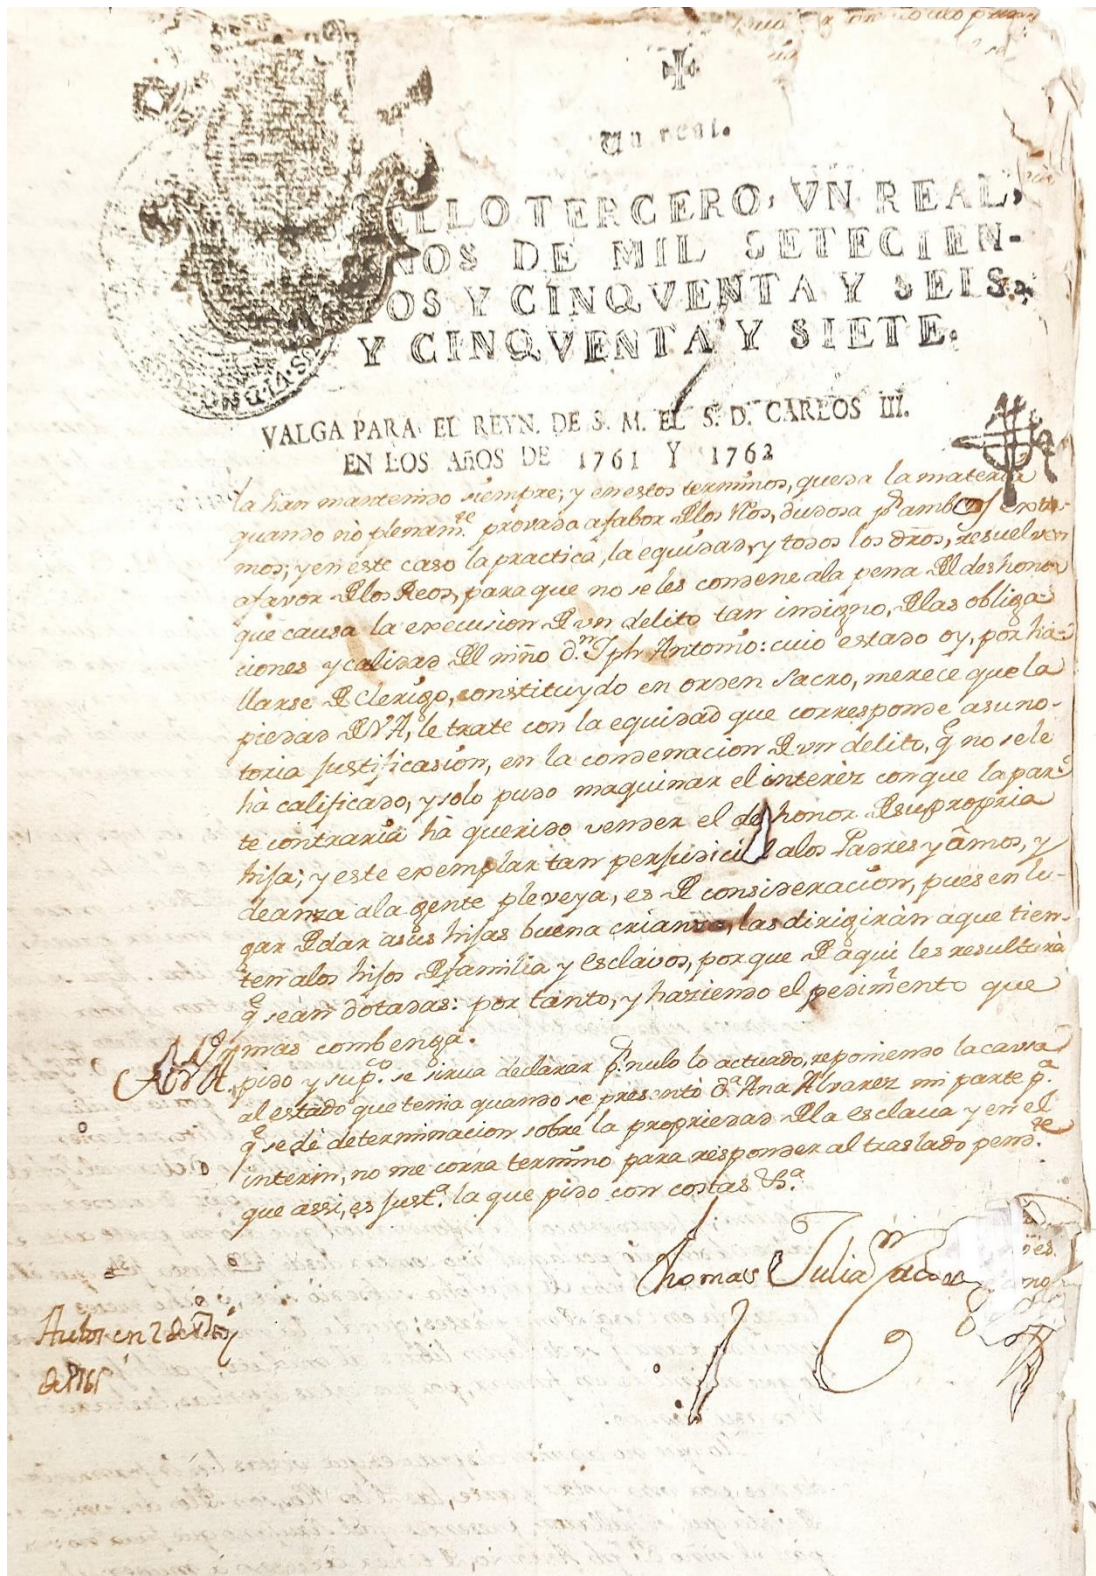 Un real.
SELLO TERCERO, VN REAL,
AÑOS DE MIL SETECIEN-
TOS Y CINQVENTA Y SEIS,
Y CINQVENTA Y SIETE.
VALGA PARA EL REYN. DE S. M. EL S. D. CARLOS III.
EN LOS AñOS DE 1761 Y 1762
la han mantenido siempre; y en estos terminos, queda la materia
quando no plenam.te provada afabor de los Rós, dudosa p.r ambos extre-
mos; y en este caso la practica, la equidad, y todos los dros, resuelven
afavor de los Reos, para que no se les condene ala pena del deshonor
que causa la execusion de vn delito tan indigno, de las obliga-
ciones y calidad del niño d.n Jph Antonio: cuio estado oy, por ha-
llarse de Clerigo, constituydo en orden sacro, merece que la
piedad de V A, le trate con la equidad que corresponde asu no-
toria justificasión, en la condenacion de vn delito, q.e no sele
hà calificado, y solo pudo maquinar el interèz con que la par-
te contraria hà querido vender el deshonor de su propria
hija; y este exemplar tan perjudicial alos Padres y amos, y
deanza ala gente pleveya, es de consideracion, pues en lu-
gar de dar asus hijas buena crianza, las dirigiràn aque tien-
ten alos hijos de familia y esclavos, porque de aqui les resultarà
q.e seàn dotadas: por tanto, y haziendo el pedimento que
mas combenga.
A V A. pido y sup.co se sirva declarar p.r nulo lo actuado, reponiendo la causa
al estado que tenia quando se presentò d.a Ana Alvarez mi parte p.a
q.e se dè determinacion sobre la propriedad de la esclava y en el
interin, no me corra termino para responder al traslado pend.te
que assi, es just.a la que pido con costas &.a
Thomas Julia
Autos en 2 de
de 1761